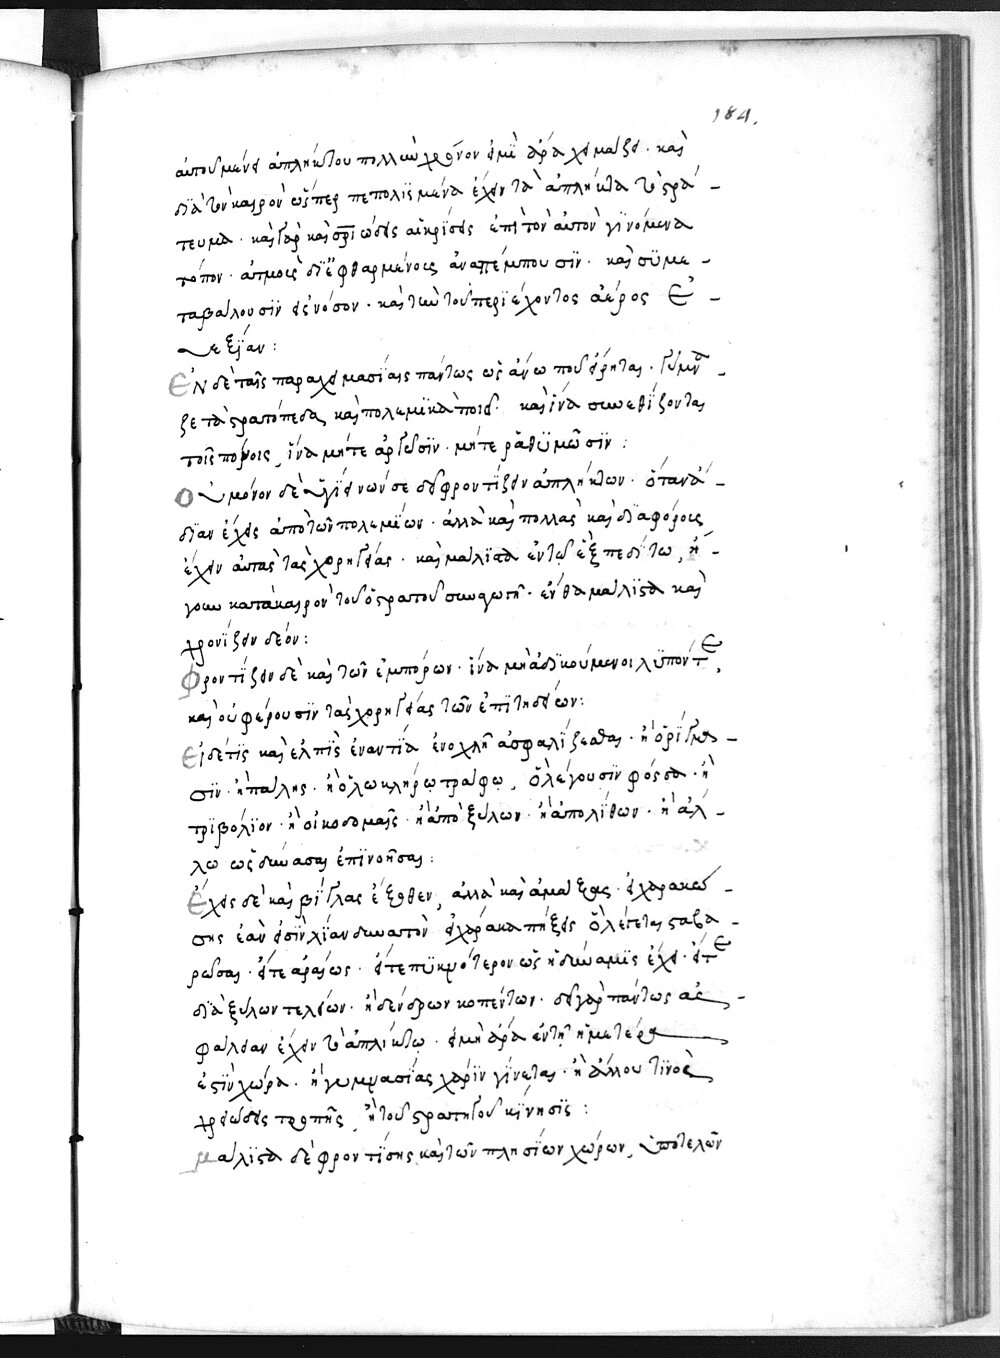 184.
αὐτοῦ μένε ἀπλήκτου πολλὺν χρόνον εἰ μὴ ἄρα χειμάζει. καὶ
διὰ τὸν καιρὸν ὥσπερ πεπολισμένα ἔχειν τὰ ἄπληκτα τὸ στρά-
τευμα. καὶ γὰρ καὶ αἱ κρίσεις ἐπὶ τὸν αὐτὸν γινόμεναι
τόπον. ἀτμοῖς διεφθαρμένοις ἀναπέμπουσιν. καὶ συμμε-
ταβάλουσιν εἰς νόσον. καὶ τὴν τοῦ περιέχοντος ἀέρος εὐ-
εξίαν:
Ἐν δὲ ταῖς παραχειμασίαις πάντως ὡς ἄνω που εἴρηται. γύμνα-
ζε τὰ στρατόπεδα καὶ πολεμικὰ ποίει. καὶ ἵνα συνεθίζονται
τοῖς πόνοις, ἵνα μήτε ἀργῶσιν. μήτε ῥαθυμῶσιν:
Οὐ μόνον δὲ ὑγιεινῶν σε δεῖ φροντίζειν ἀπλήκτων. ὅταν ἄ-
διαν ἔχεις ἀπὸ τῶν πολεμίων. ἀλλὰ καὶ πολλὰς καὶ διαφόροις
ἔχειν αὐτὰς τὰς χορηγίας. καὶ μάλιστα ἐν τῷ ἐξπεδίτω, ἤ-
γουν κατὰ καιρὸν τοῦ στρατοῦ συναγωγῆ. ἔνθα μάλιστα καὶ
χρονίζειν δέον:
Φροντίζειν δὲ καὶ τῶν ἐμπόρων. ἵνα μὴ ἀδικούμενοι λυποῦντε,
καὶ οὐ φέρουσιν τὰς χορηγίας τῶν ἐπιτηδείων:
Εἰ δέ τις καὶ ἐλπὶς ἐναντία ἐνοχλῆ ἀσφαλίζεσθαι. ἢ ὀρύγμα-
σιν. ἢ πάλης. ἢ ὁλωκλήρω τράφω, ὃ λέγουσιν φόσσα. ἢ
τριβόλιον. ἢ οἰκοδομαῖς. ἢ ἀπὸ ξύλων. ἢ ἀπὸ λίθων. ἢ ἄλ-
λω ὡς δύνασαι ἐπινοῆσαι:
Ἔχεις δὲ καὶ βίγλας ἔξωθεν, ἀλλὰ καὶ ἁμάξας. εἰ χαρακώ-
σης ἐὰν εἰσὶν λίαν δυνατὸν εἰ χάρακα πήξεις ὃ λέγεται σταβα-
ρῶσαι. εἴτε ἀραίως. εἴτε πυκνότερον ὡς ἡ δύναμις ἔχει. εἴτε
διὰ ξύλων τελείων. ἢ δένδρων κοπέντων. δεῖ γὰρ πάντως ἀσ-
φάλειαν ἔχειν τὸ ἀπλίκτω. εἰ μὴ ἄρα ἐν τῆ ἡμετέρα
ἐστὶν χώρα. ἢ γυμνασίας χάριν γίνεται. ἢ ἄλλου τινὸς
χρειώδεις τροπῆς, ἢ τοῦ στρατηγοῦ κίνησις:
Μάλιστα δὲ φροντίσης καὶ τῶν πλησίων χώρων, ὑποτελῶν